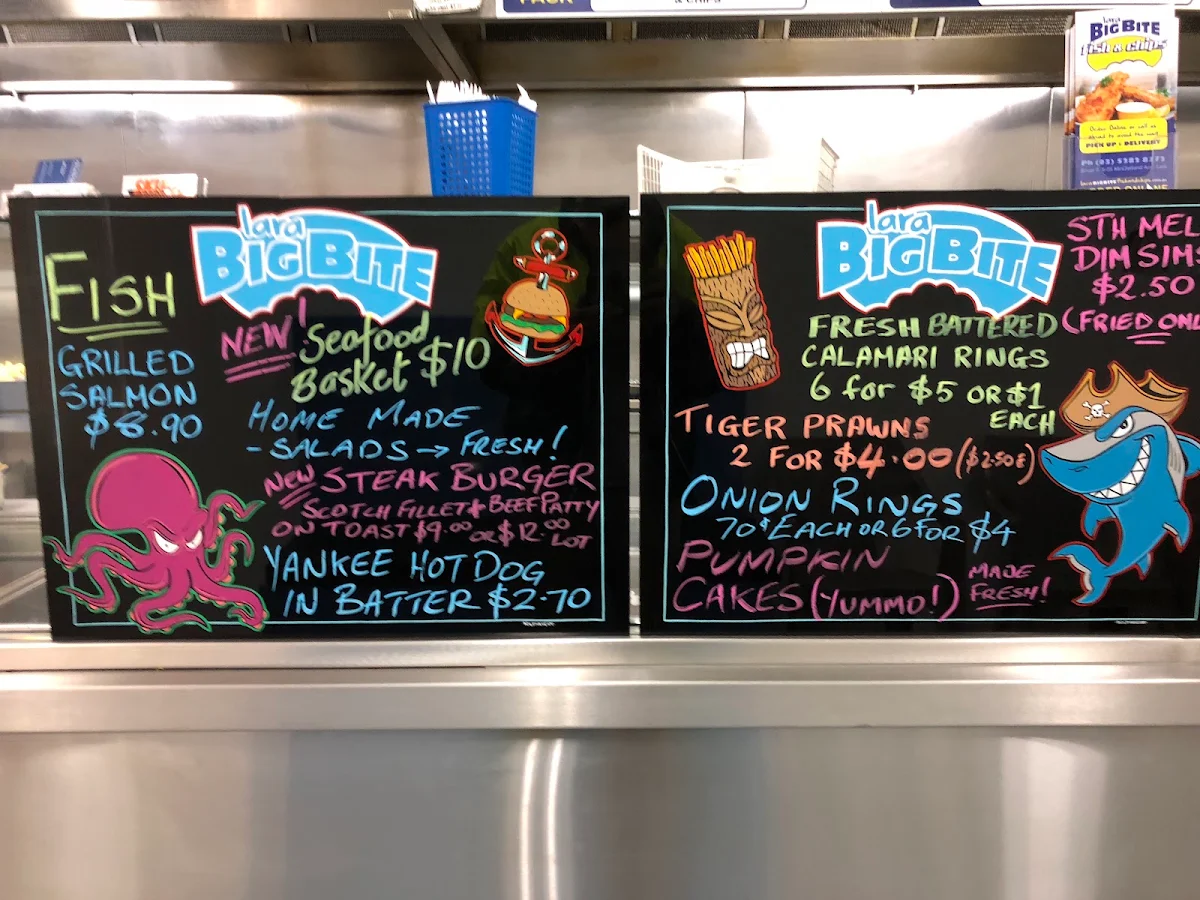 PACK
& CHIPS
lara
BIG BITE
fish & chips
PICK UP & DELIVERY
Ph (03) 5282 8273
ORDER ONLINE
lara
BIG BITE
FISH
GRILLED
SALMON
$8.90
NEW! Seafood
Basket $10
HOME MADE
-SALADS → FRESH!
NEW STEAK BURGER
SCOTCH FILLET + BEEF PATTY
ON TOAST $9.00 OR $12.00 LOT
YANKEE HOT DOG
IN BATTER $2.70
lara
BIG BITE
STH MEL
DIM SIMS
$2.50
(FRIED ONL
FRESH BATTERED
CALAMARI RINGS
6 for $5 OR $1
EACH
TIGER PRAWNS
2 FOR $4.00 ($2.50 E)
ONION RINGS
70¢ EACH OR 6 FOR $4
PUMPKIN
CAKES (YUMMO!)
MADE
FRESH!